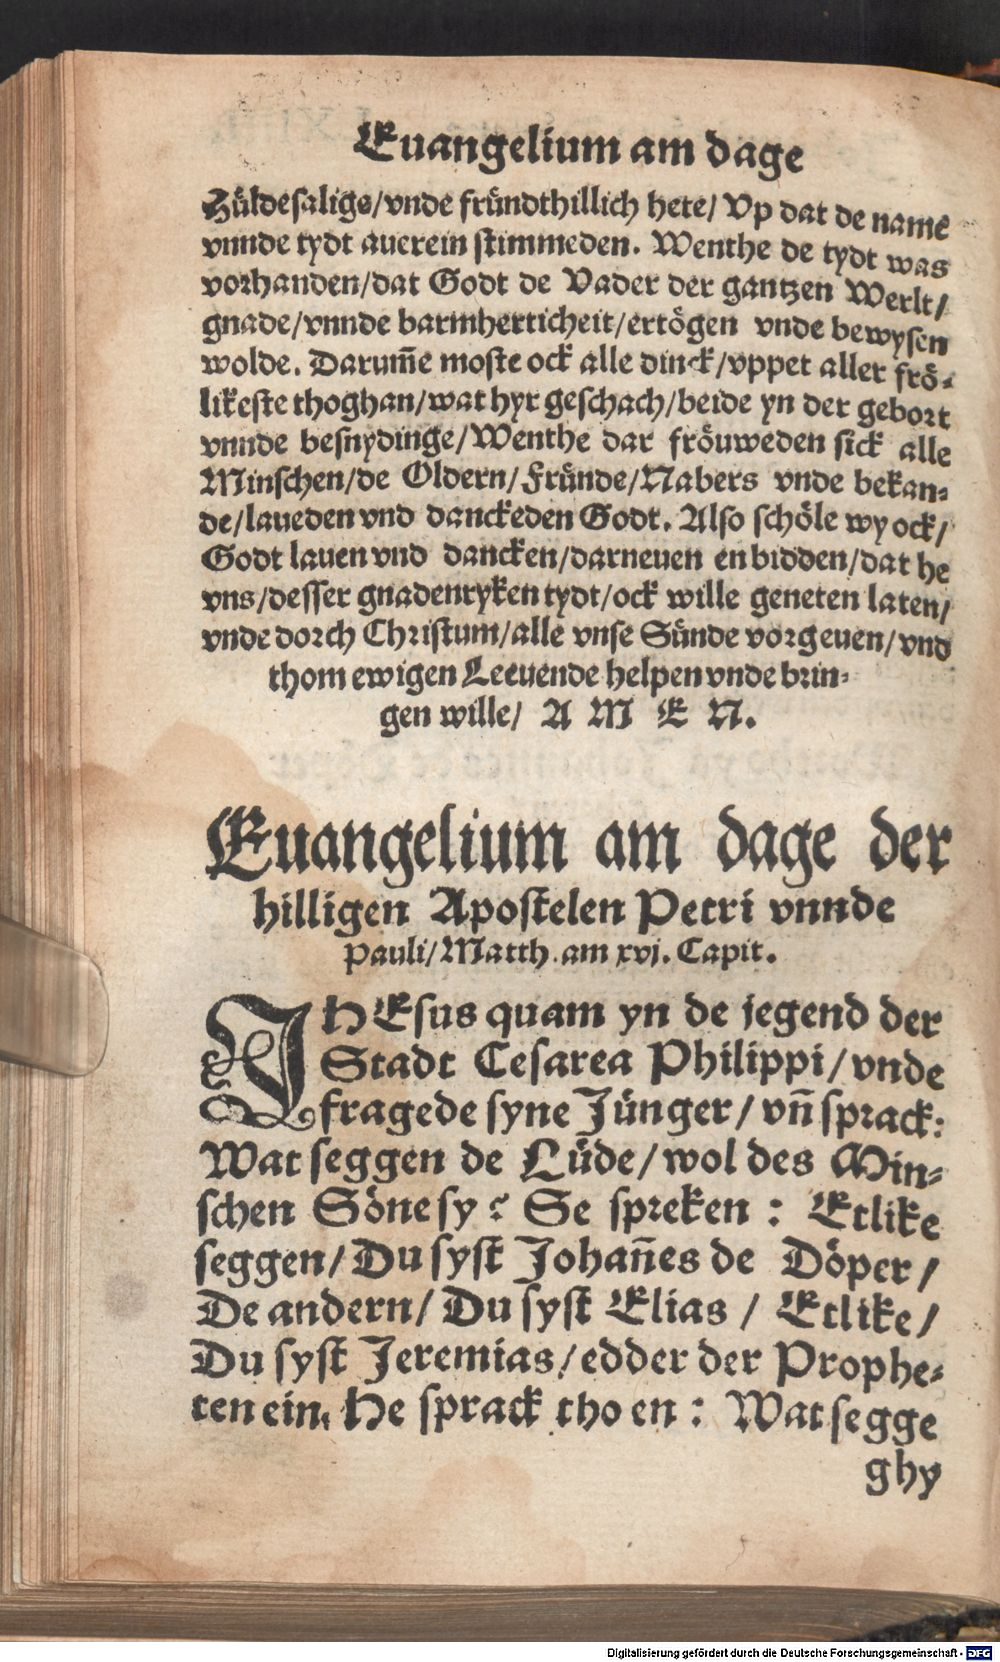 Euangelium am dage
Hüldesalige/vnde fründthillich hete/ Vp dat de name
vnnde tydt auerein stimmeden. Wenthe de tydt was
vorhanden/dat Godt de Vader der gantzen Werlt/
gnade/vnnde barmherticheit/ertögen vnde bewysen
wolde. Darum̃e moste ock alle dinck/vppet aller frö-
likeste thoghan/wat hyr geschach/beide yn der gebort
vnnde besnydinge/Wenthe dar fröuweden sick alle
Minschen/de Oldern/Fründe/Nabers vnde bekan-
de/laueden vnd danckeden Godt. Also schöle wy ock/
Godt lauen vnd dancken/darneuen en bidden/dat he
vns/desser gnadenryken tydt/ock wille geneten laten/
vnde dorch Christum/alle vnse Sünde vorgeuen/vnd
thom ewigen Leeuende helpen vnde brin-
gen wille/ A M E N.
Euangelium am dage der
hilligen Apostelen Petri vnnde
Pauli/Matth. am xvj. Capit.
JHEsus quam yn de jegend der
Stadt Cesarea Philippi/vnde
fragede syne Jünger/vñ sprack:
Wat seggen de Lüde/wol des Min-
schen Söne sy? Se spreken: Etlike
seggen/Du syst Johañes de Döper/
De andern/Du syst Elias/ Etlike/
Du syst Jeremias/edder der Prophe-
ten ein. He sprack tho en: Wat segge
ghy
Digitalisierung gefördert durch die Deutsche Forschungsgemeinschaft - DFG